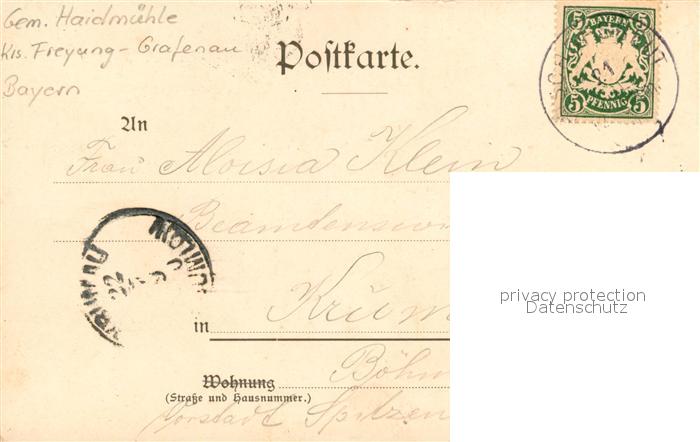 Gem. Haidmühle
Krs. Freyung-Grafenau
Bayern
Postkarte.
BAYERN
5 5
5 5
PFENNIG
21
An
Frau Aloisia Klein
22
in
Böhm
Wohnung
(Straße und Hausnummer.)
Vorstadt Spitzen
privacy protection
Datenschutz